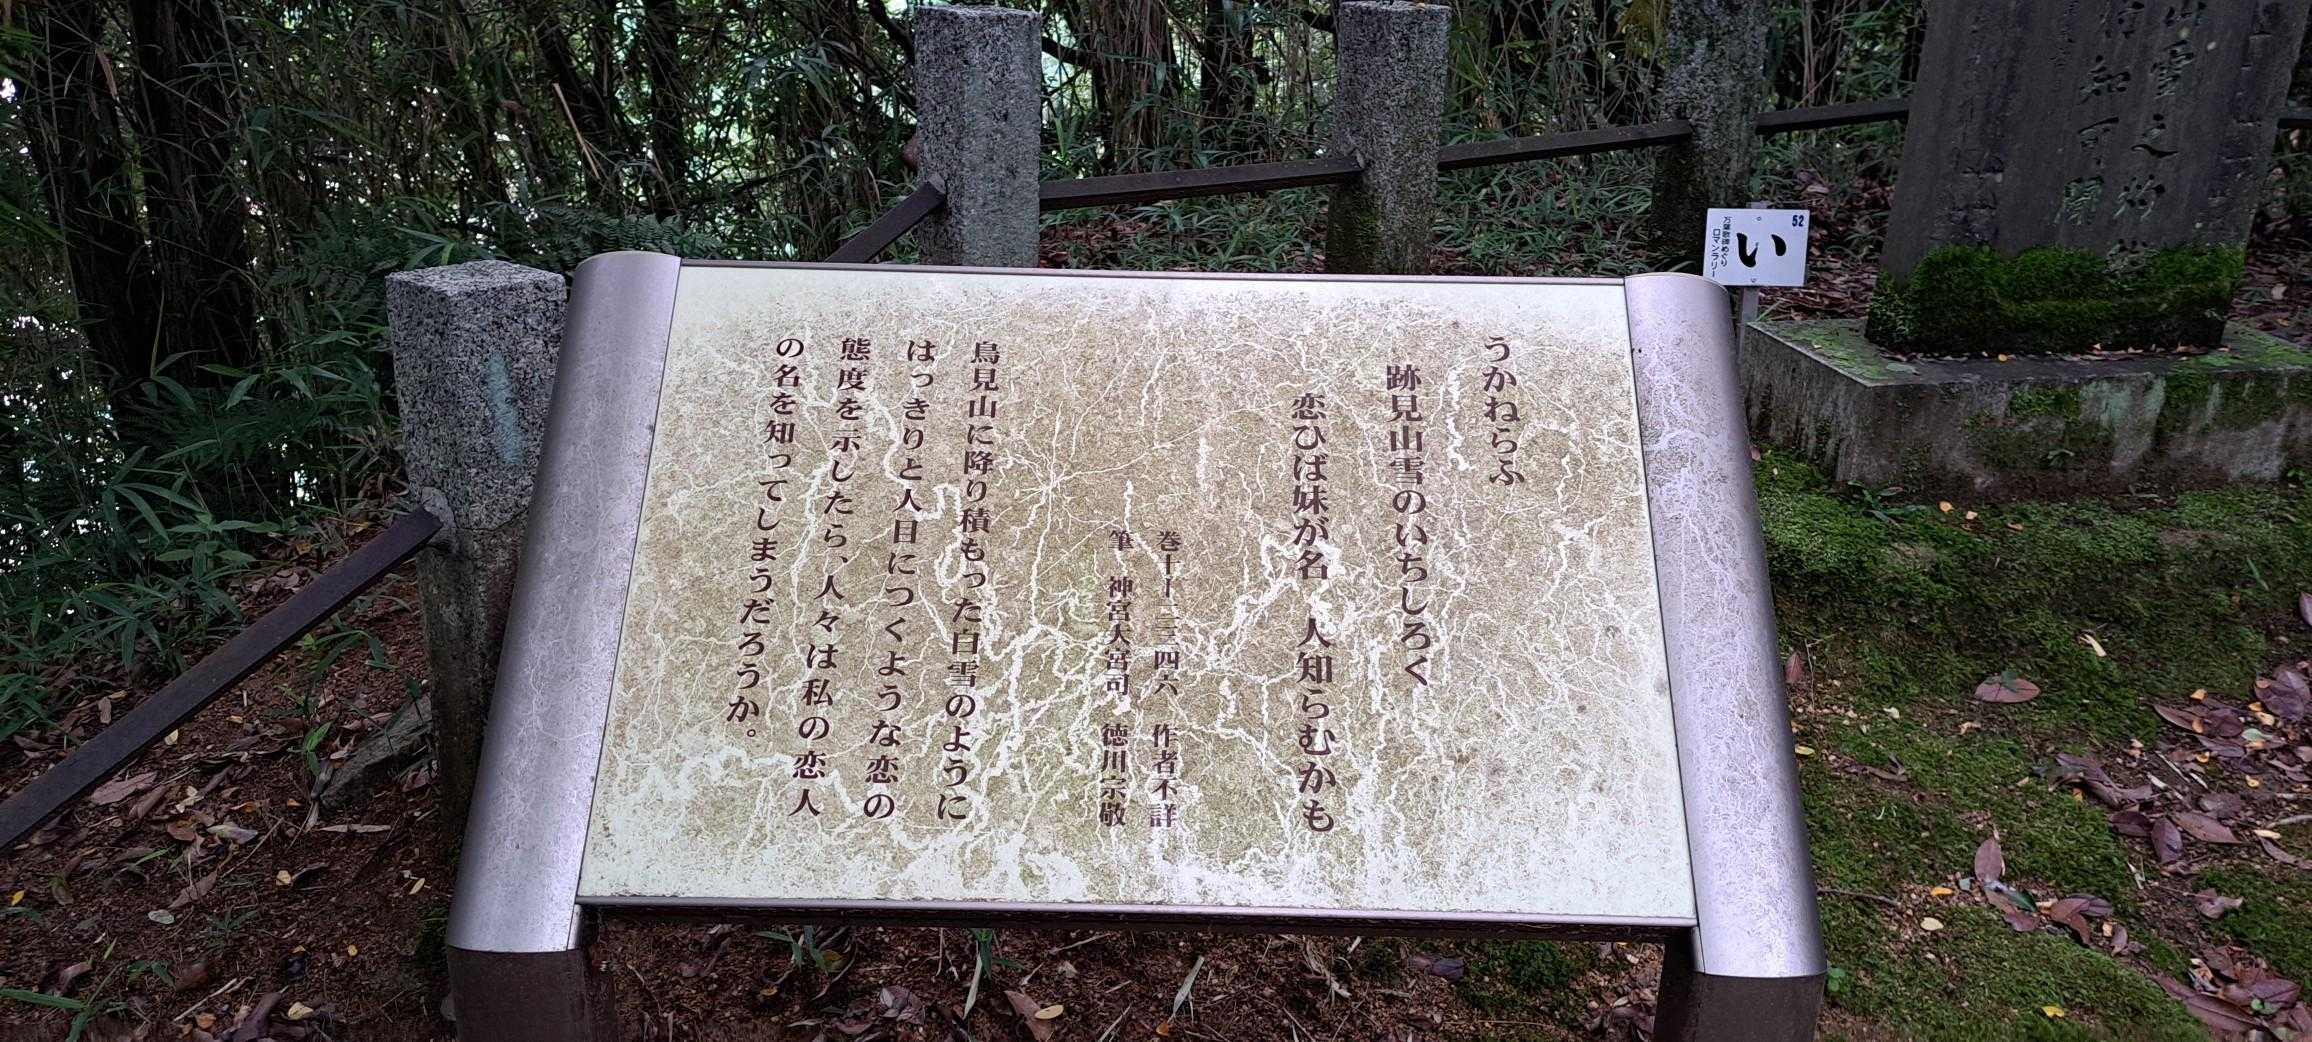 うかねらふ
跡見山雪のいちしろく
恋ひば妹が名 人知らむかも
巻十ー二三四六 作者不詳
筆 神宮大宮司 徳川宗敬
鳥見山に降り積もった白雪のように
はっきりと人目につくような恋の
態度を示したら、人々は私の恋人
の名を知ってしまうだろうか。
52
い
万葉歌碑めぐり
ロマンラリー
山雪之灼
知可聞